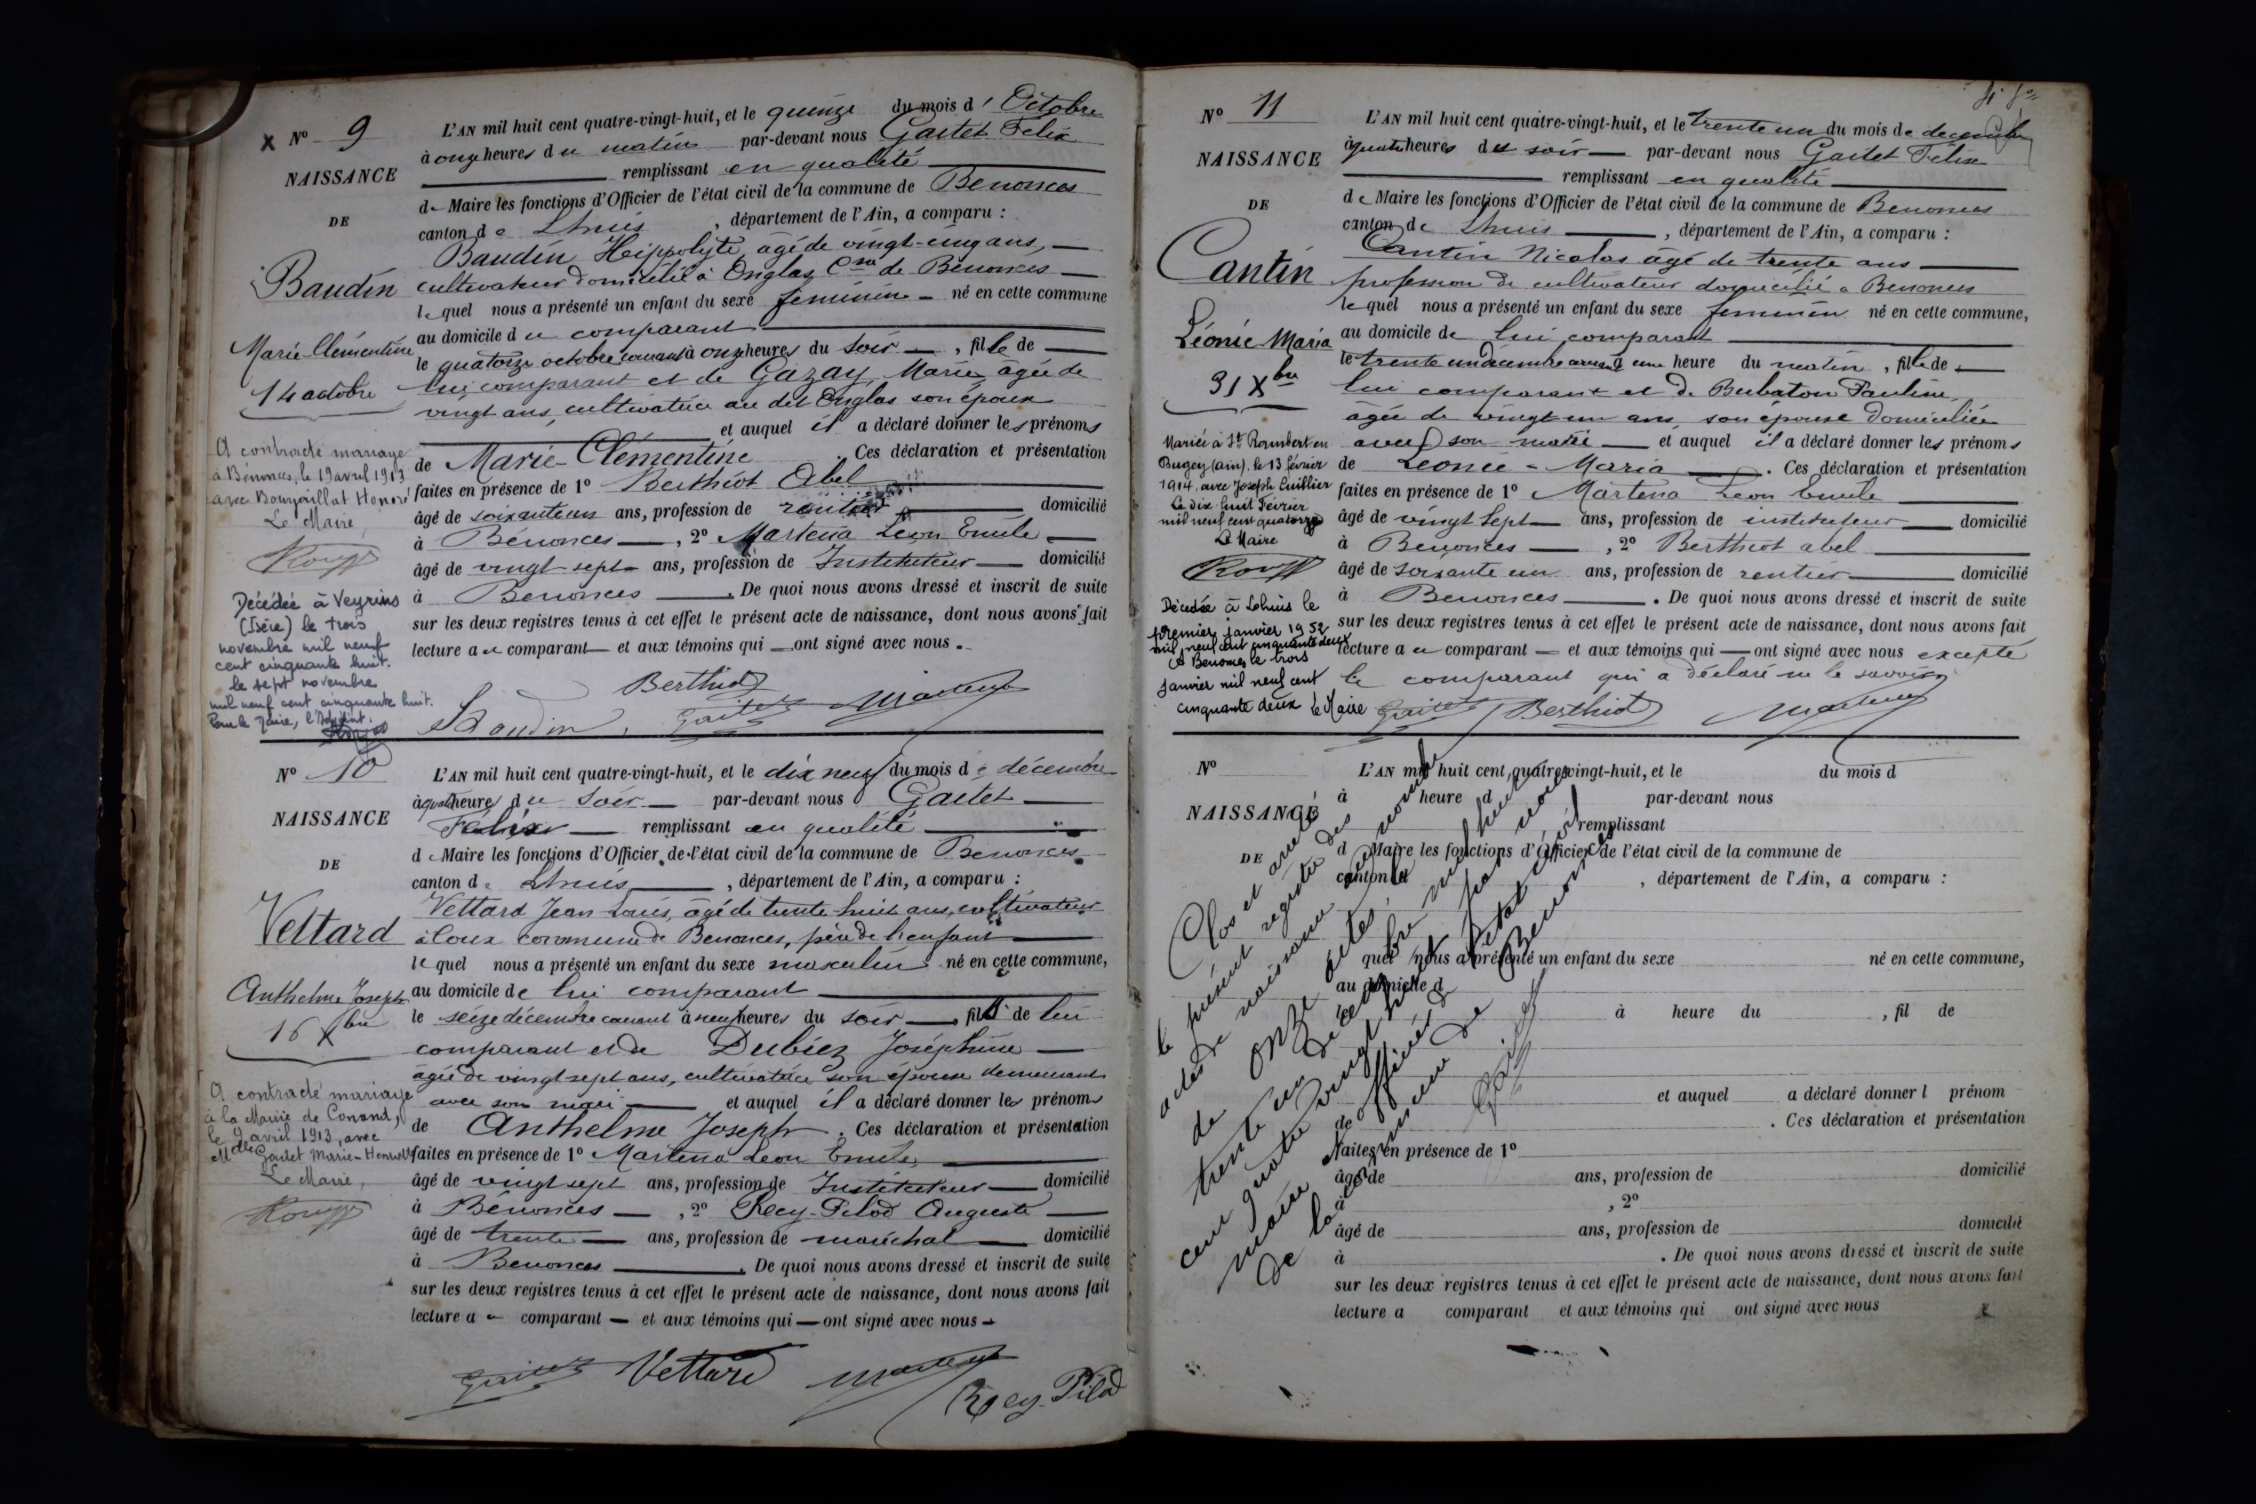 X Nº 9
NAISSANCE
DE
Baudin
Marie Clémentine
14 octobre
A contracté mariage
à Bénonces, le 19 avril 1913
avec Bourgaillat Honoré
Le Maire,
Décédée à Veyrins
(Isère) le trois
novembre mil neuf
cent cinquante huit.
le sept novembre
mil neuf cent cinquante huit.
Pour le Maire, l'Adjoint.
L'AN mil huit cent quatre-vingt-huit, et le quinze du mois d' Octobre
à onze heures du matin par-devant nous Gaitet Félix
remplissant en qualité
de Maire les fonctions d'Officier de l'état civil de la commune de Benonces
canton de Lhuis, département de l'Ain, a comparu :
Baudin Heippolyte âgé de vingt-cinq ans,
cultivateur domicilié à Onglas Cne de Bénonces
lequel nous a présenté un enfant du sexe féminin né en cette commune
au domicile du comparant
le quatorze octobre courant à onze heures du soir, fille de
lui comparant et de Gazay Marie âgée de
vingt ans, cultivatrice au dit Onglas son épouse
et auquel il a déclaré donner les prénoms
de Marie-Clémentine. Ces déclaration et présentation
faites en présence de 1º Berthiot Abel
âgé de soixante un ans, profession de rentier domicilié
à Bénonces, 2º Martena Leon Emile
âgé de vingt sept ans, profession de Instituteur domicilié
à Benonces. De quoi nous avons dressé et inscrit de suite
sur les deux registres tenus à cet effet le présent acte de naissance, dont nous avons fait
lecture au comparant et aux témoins qui ont signé avec nous.
Berthiot
Baudin Gaitet Martena
Nº 10
NAISSANCE
DE
Vettard
Anthelme Joseph
16 Xbre
A contracté mariage
à la Mairie de Conand,
le 9 avril 1913, avec
Mdlle Goulet Marie-Henriette
Le Maire,
L'AN mil huit cent quatre-vingt-huit, et le dix neuf du mois de décembre
à quatre heures du soir par-devant nous Gaitet
Félix remplissant en qualité
de Maire les fonctions d'Officier de l'état civil de la commune de Benonces
canton de Lhuis, département de l'Ain, a comparu :
Vettard Jean Louis, âgé de trente huit ans, cultivateur
à Coux commune de Benonces, père de l'enfant
lequel nous a présenté un enfant du sexe masculin né en cette commune,
au domicile de lui comparant
le seize décembre courant à neuf heures du soir, fils de lui
comparant et de Dubiez Joséphine
âgée de vingt sept ans, cultivatrice son épouse demeurant
avec son mari et auquel il a déclaré donner les prénoms
de Anthelme Joseph. Ces déclaration et présentation
faites en présence de 1º Martena Leon Emile,
âgé de vingt sept ans, profession de Instituteur domicilié
à Bénonces, 2º Recy-Pilod Auguste
âgé de trente ans, profession de maréchal domicilié
à Benonces. De quoi nous avons dressé et inscrit de suite
sur les deux registres tenus à cet effet le présent acte de naissance, dont nous avons fait
lecture au comparant et aux témoins qui ont signé avec nous
Gaitet Vettard Martena
Recy-Pilod
Nº 11
NAISSANCE
DE
Cantin
Léonie Maria
31 Xbre
Mariée à St Rambert en
Bugey (Ain), le 13 février
1914, avec Joseph Cuillier
Le dix huit Février
mil neuf cent quatorze
Le Maire
Décédée à Lhuis le
premier janvier 1952
mil neuf cent cinquante deux
A Benonces le trois
janvier mil neuf cent
cinquante deux Le Maire
L'AN mil huit cent quatre-vingt-huit, et le trente un du mois de décembre
à quatre heures du soir par-devant nous Gaitet Félix
remplissant en qualité
de Maire les fonctions d'Officier de l'état civil de la commune de Benonces
canton de Lhuis, département de l'Ain, a comparu :
Cantin Nicolas âgé de trente ans
profession de cultivateur domicilié à Benonces
lequel nous a présenté un enfant du sexe feminin né en cette commune,
au domicile de lui comparant
le trente un décembre courant à une heure du matin, fille de
lui comparant et de Bubaton Pauline,
âgée de vingt un ans, son épouse domiciliée
avec son mari et auquel il a déclaré donner les prénoms
de Léonie-Maria. Ces déclaration et présentation
faites en présence de 1º Martena Leon Emile
âgé de vingt sept ans, profession de instituteur domicilié
à Benonces, 2º Berthiot abel
âgé de soixante un ans, profession de rentier domicilié
à Benonces. De quoi nous avons dressé et inscrit de suite
sur les deux registres tenus à cet effet le présent acte de naissance, dont nous avons fait
lecture au comparant et aux témoins qui ont signé avec nous excepté
le comparant qui a déclaré ne le savoir
Gaitet Berthiot Martena
Nº
NAISSANCE
DE
L'AN mil huit cent quatre-vingt-huit, et le du mois d
à heure d par-devant nous
remplissant
d Maire les fonctions d'Officier de l'état civil de la commune de
canton d, département de l'Ain, a comparu :
quel nous a présenté un enfant du sexe né en cette commune,
au domicile d
le à heure du, fil de
et auquel a déclaré donner l prénom
de. Ces déclaration et présentation
faites en présence de 1º
âgé de ans, profession de domicilié
à, 2º
âgé de ans, profession de domicilié
à. De quoi nous avons dressé et inscrit de suite
sur les deux registres tenus à cet effet le présent acte de naissance, dont nous avons fait
lecture a comparant et aux témoins qui ont signé avec nous
Clos et arrêté
le présent registre des
actes de naissance au nombre
de onze actes, le
trente un décembre mil huit
cent quatre vingt huit par nous
maire officier de l'état civil
de la commune de Benonces
Gaitet